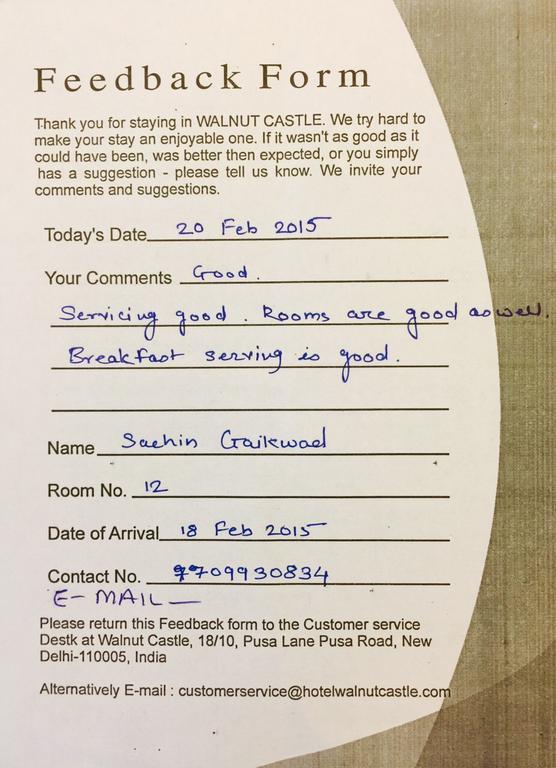 Feedback Form
Thank you for staying in WALNUT CASTLE. We try hard to
make your stay an enjoyable one. If it wasn't as good as it
could have been, was better then expected, or you simply
has a suggestion - please tell us know. We invite your
comments and suggestions.
Today's Date 20 Feb 2015
Your Comments Good.
Servicing good. Rooms are good as well.
Breakfast serving is good.
Name Sachin Gaikwad
Room No. 12
Date of Arrival 18 Feb 2015
Contact No. 7709930834
E-MAIL —
Please return this Feedback form to the Customer service
Destk at Walnut Castle, 18/10, Pusa Lane Pusa Road, New
Delhi-110005, India
Alternatively E-mail : customerservice@hotelwalnutcastle.com